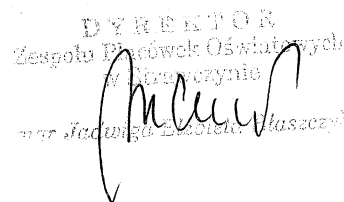 DYREKTOR
Zespołu Placówek Oświatowych
w Strawczynie
mgr Jadwiga Elżbieta Błaszczyk